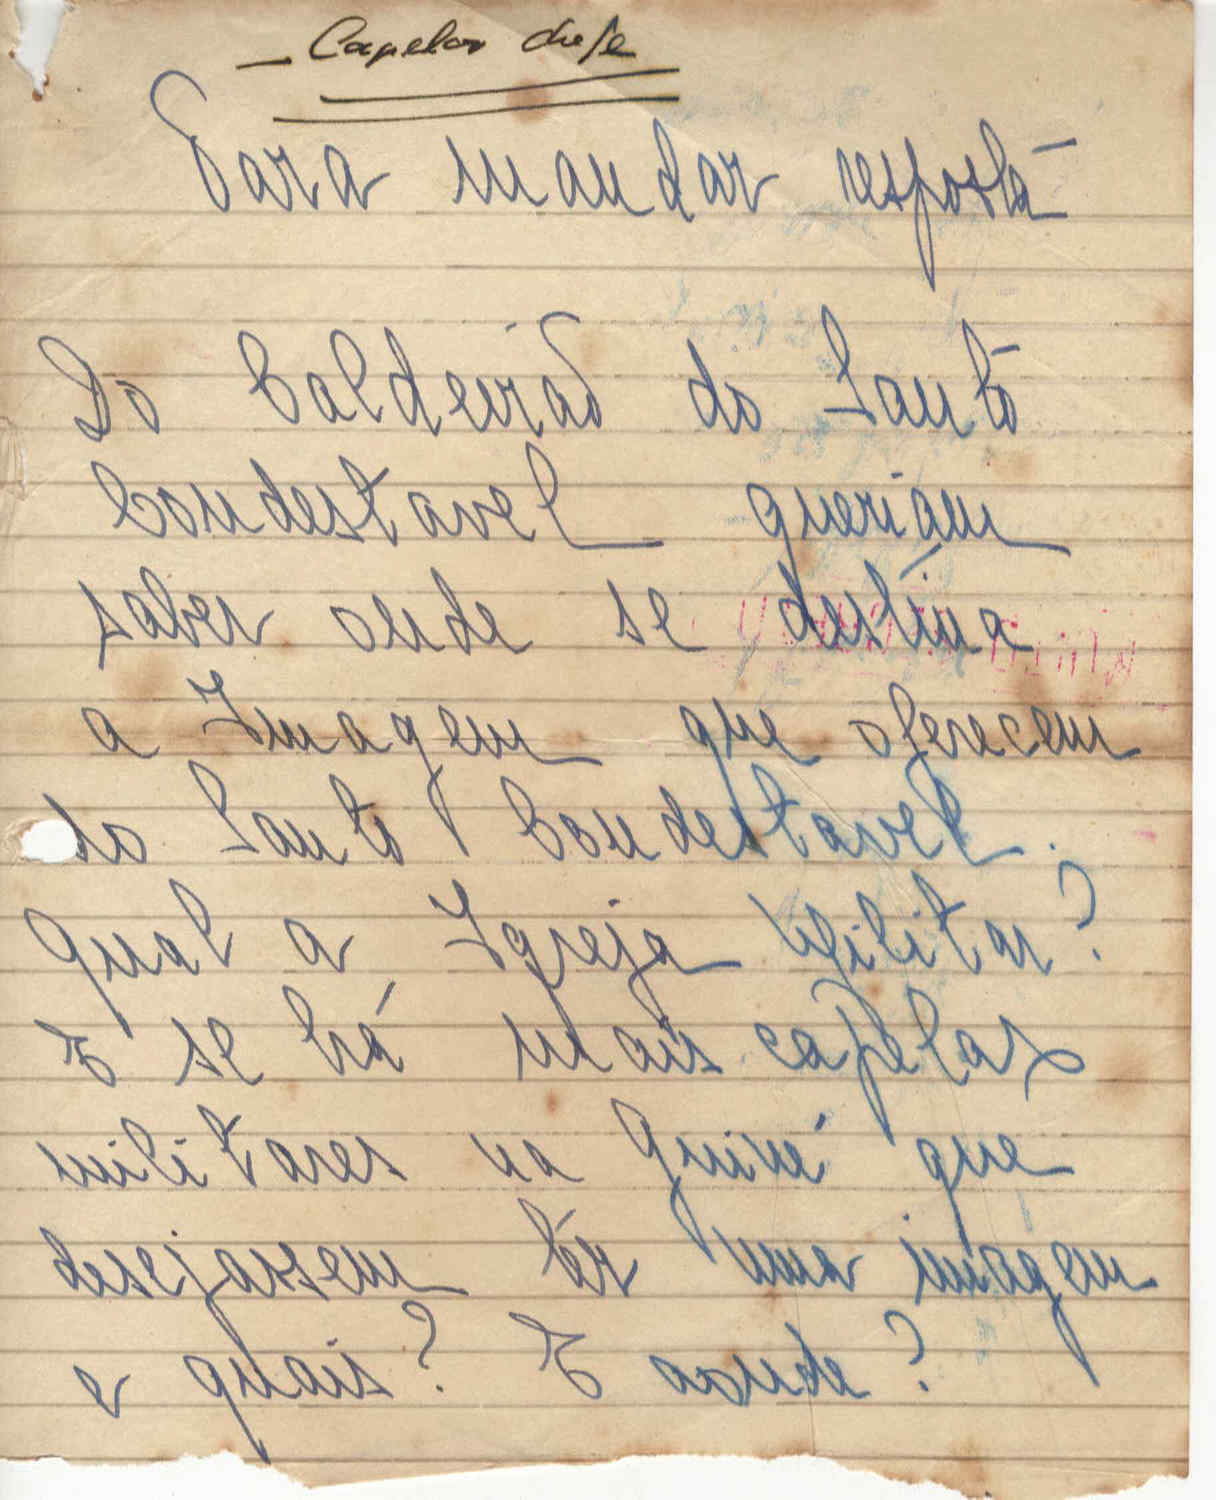 - Capelão chefe
Para mandar resposta
Do Caldeirão do Santo
Condestavel queriam
saber onde se destina
a Imagem que oferecem
do Santo Condestavel.
Qual a Igreja Militar?
E se há mais capelas
militares na Guiné que
desejassem têr uma imagem
e quais? E aonde?